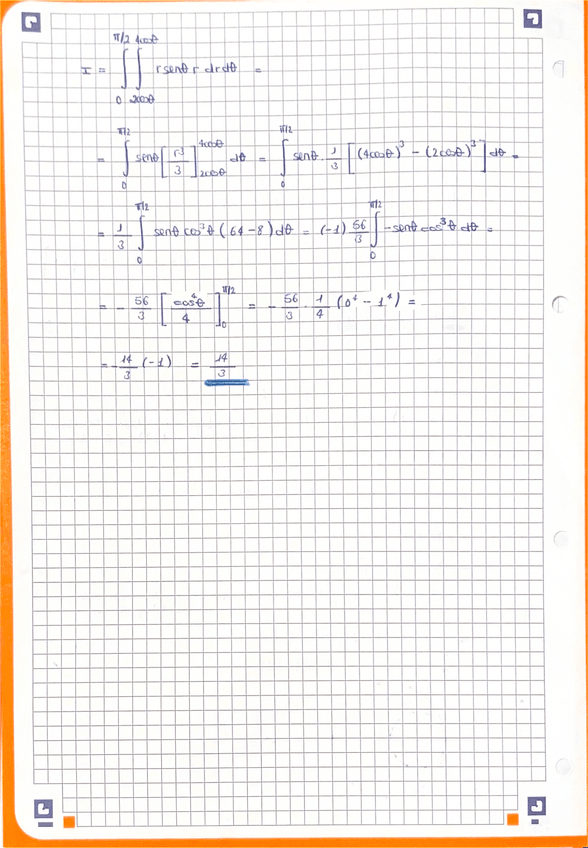 I = ∫₀^{π/2} ∫_{2cosθ}^{4cosθ} r senθ r dr dθ =
= ∫₀^{π/2} senθ [r³/3]_{2cosθ}^{4cosθ} dθ = ∫₀^{π/2} senθ · 1/3 [(4cosθ)³ − (2cosθ)³] dθ =
= 1/3 ∫₀^{π/2} senθ cos³θ (64 − 8) dθ = (−1) 56/3 ∫₀^{π/2} −senθ cos³θ dθ =
= − 56/3 [cos⁴θ/4]₀^{π/2} = − 56/3 · 1/4 (0⁴ − 1⁴) =
= − 14/3 (−1) = 14/3